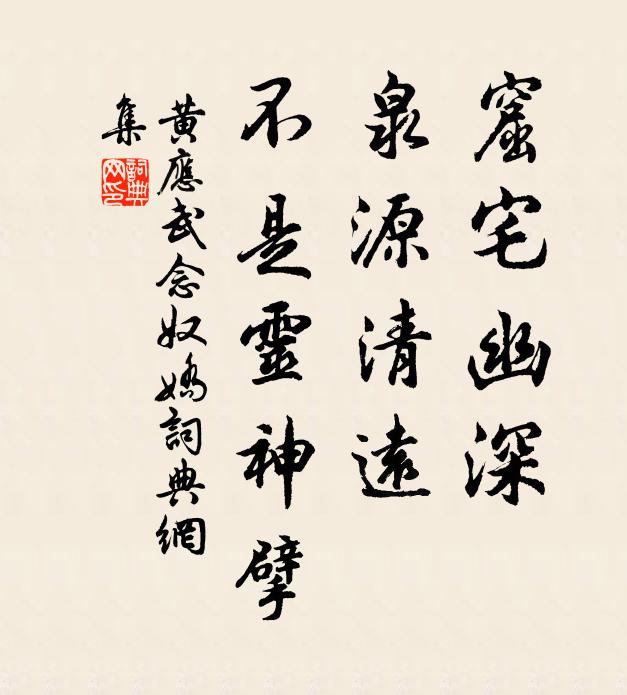 窟宅幽深
泉源清遠
不是靈神擘
黃應武念奴嬌詞典網
集
詞典
网印